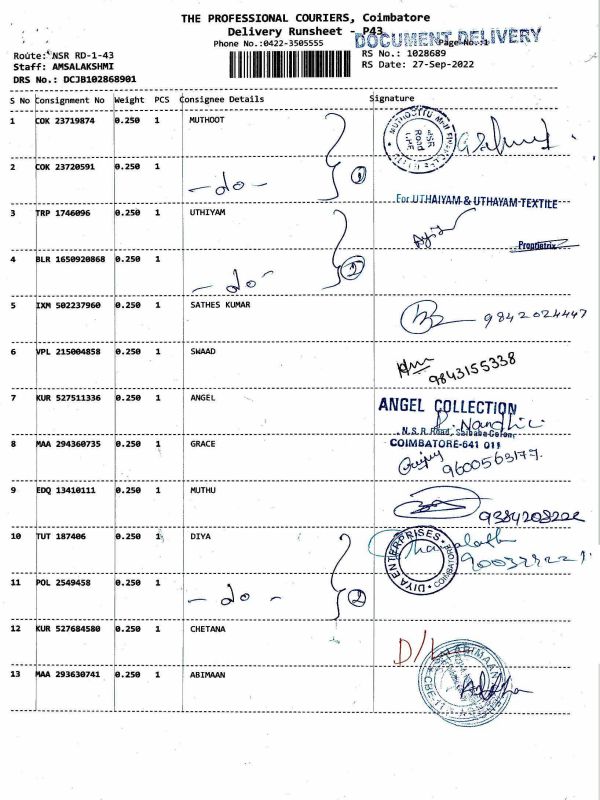 THE PROFESSIONAL COURIERS, Coimbatore
Delivery Runsheet - P43
DOCUMENT DELIVERY
Phone No.:0422-3505555 Page No.:1
Route: NSR RD-1-43 RS No.: 1028689
Staff: AMSALAKSHMI RS Date: 27-Sep-2022
DRS No.: DCJB102868901
S No Consignment No Weight PCS Consignee Details Signature
1 COK 23719874 0.250 1 MUTHOOT
NSR Road
2 COK 23720591 0.250 1
- do - 1
For UTHAIYAM & UTHAYAM TEXTILE
3 TRP 1746096 0.250 1 UTHIYAM
Proprietrix
4 BLR 1650920868 0.250 1
- do - 2
5 IXM 502237960 0.250 1 SATHES KUMAR 9842024447
6 VPL 215004858 0.250 1 SWAAD
9843155338
7 KUR 527511336 0.250 1 ANGEL ANGEL COLLECTION
R. Nandhi
N.S.R. Road, Saibaba Colony,
8 MAA 294360735 0.250 1 GRACE COIMBATORE-641 011
9600563177.
9 EDQ 13410111 0.250 1 MUTHU
9384208222
10 TUT 187406 0.250 1 DIYA
DIYA ENTERPRISES COIMBATORE
11 POL 2549458 0.250 1
- do - 2
12 KUR 527684580 0.250 1 CHETANA
D/L
13 MAA 293630741 0.250 1 ABIMAAN
ABIMAAN